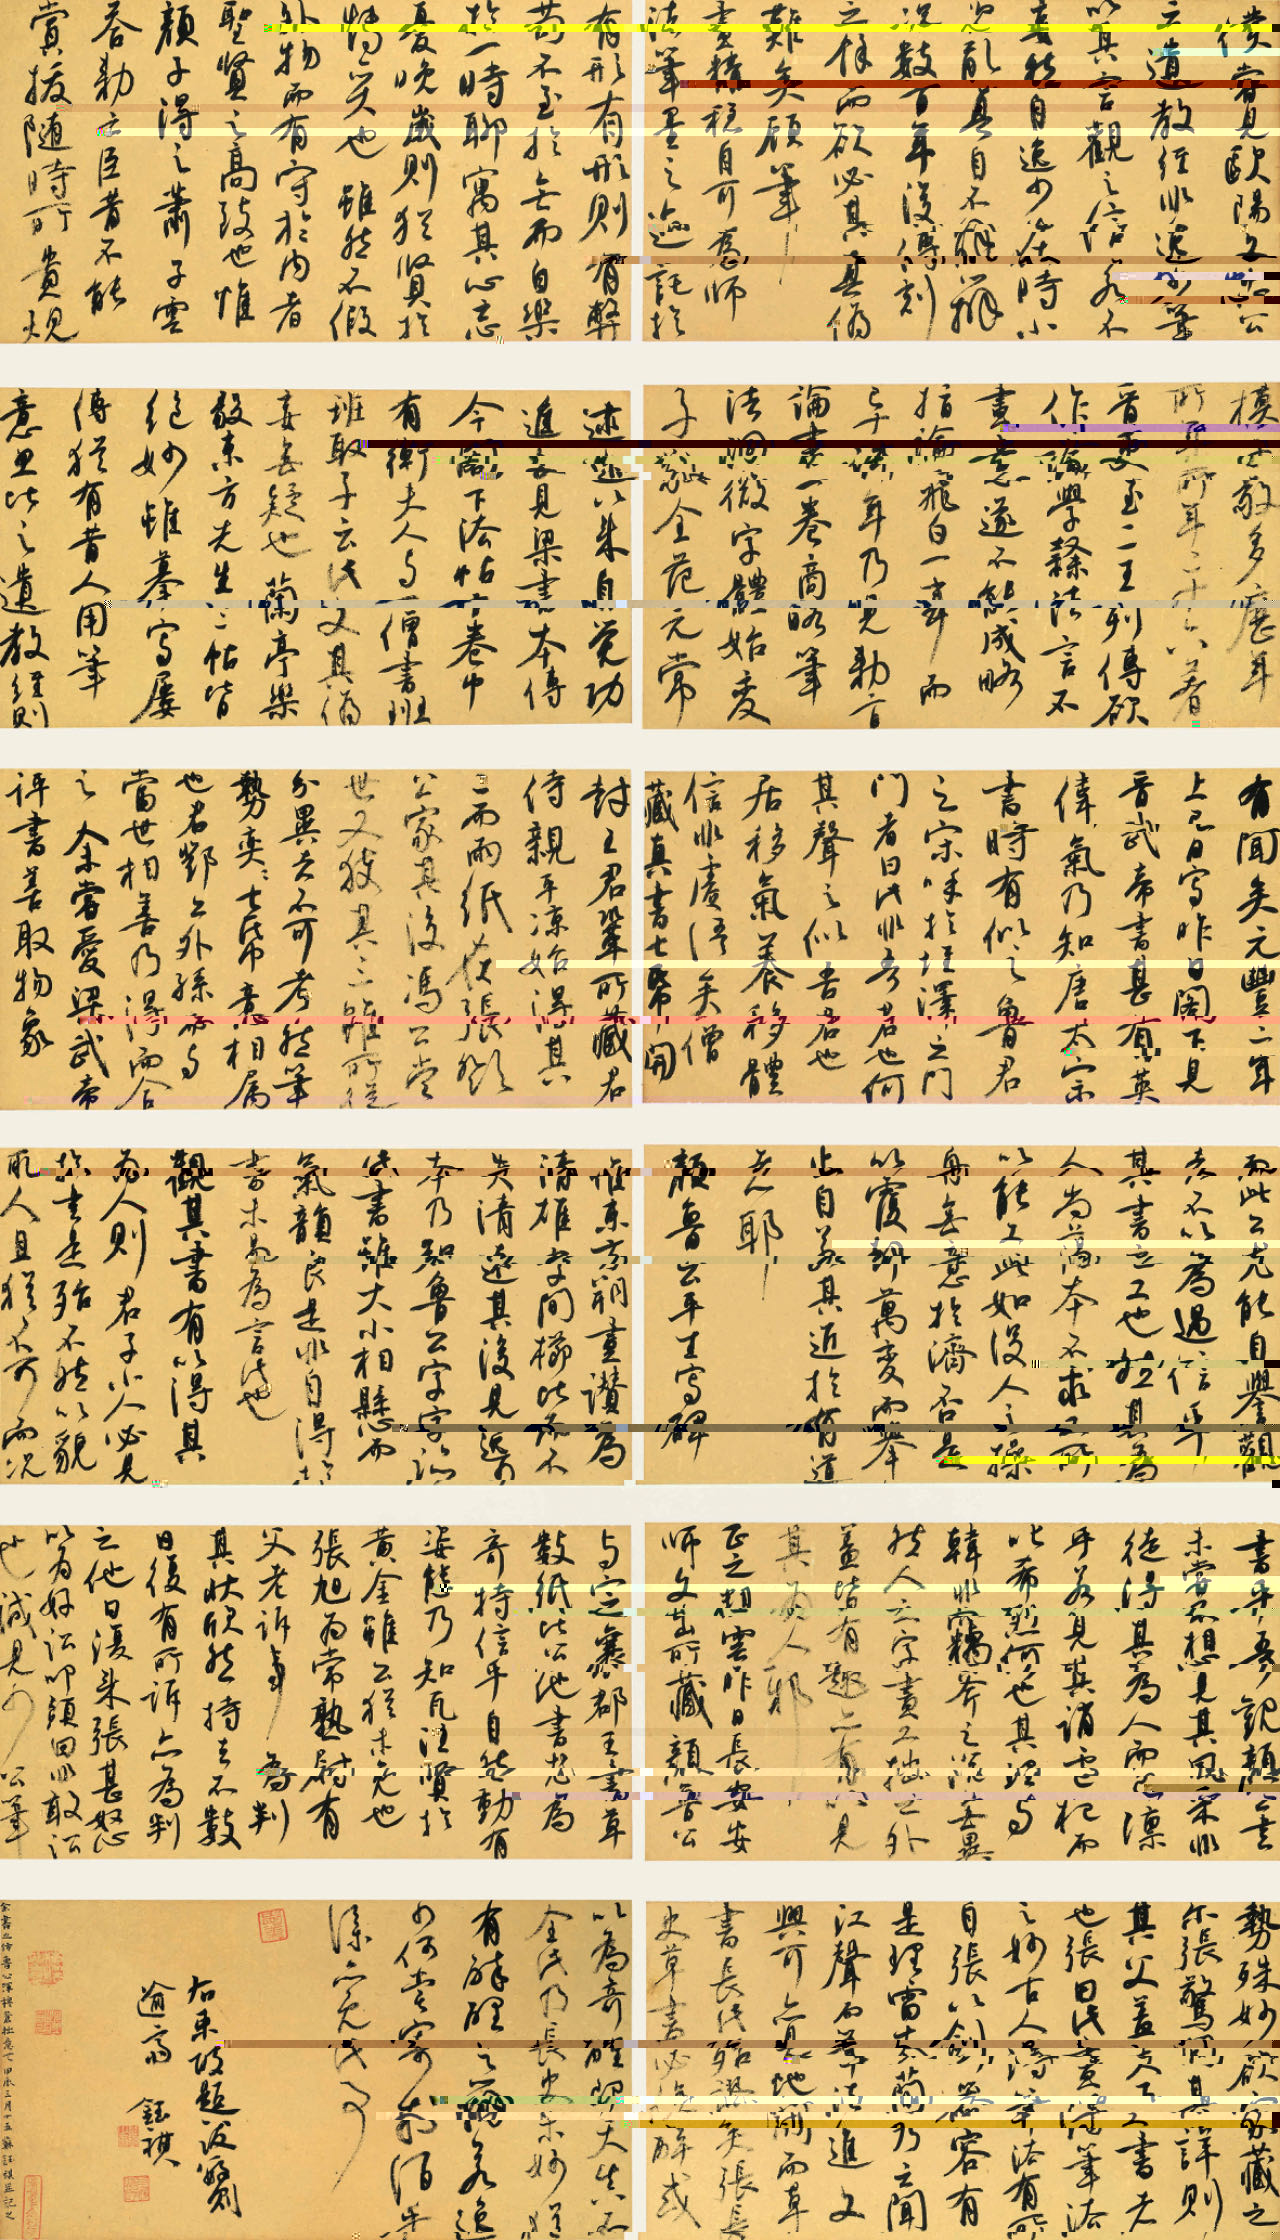 僕嘗見歐陽文忠公
云遺教經非逸少筆
以其言觀之信若不
妄然自逸少在時小
兒亂真自不能辨
況數百年後傳刻
之餘而欲必其真偽
難矣顧筆
畫精穩自可為師
法筆墨之迹託於
有形有形則有弊
苟不至於無而自樂
於一時聊寓其心忘
憂晚歲則猶賢於
博奕也雖然不假
外物而有守於內者
聖賢之高致也惟
顏子得之蕭子雲
答勅云臣昔不能
賞拔隨時所貴規
模子敬多歷年
所年二十六著
晉史至二王列傳欲
作論學隸法言不
盡意遂不能成略
指論飛白一事而
已十許年乃見勅旨
論書一卷商略筆
法洞徹字體始變
子敬全范元常
逮爾以來自覺功
進此見梁書本傳
今閣下法帖十卷中
有衛夫人與一僧書班
班取子雲此文其偽
妄無疑也蘭亭樂
毅東方先生三帖皆
絕妙雖摹寫屢
傳猶有昔人用筆
意思比之遺教經則
有間矣元豐二年
上巳日寫昨日閣下見
晉武帝書甚有英
偉氣乃知唐太宗
書時有似之魯君
之宋呼於垤澤之門
門者曰此非吾君也何
其聲之似吾君也
居移氣養移體
信非虛語矣僧
藏真書七紙開
封王君鞏所藏君
侍親平涼始得其
二而兩紙在張鄧
公家其後馮公當
世又獲其三雖所從
分異者不可考然筆
勢奕奕七紙意相屬
也君鄧公外孫而與
當世相善乃得而合
之余嘗愛梁武帝
評書善取物象
而此公尤能自譽觀
者不以為過信乎
其書之工也然其為
人尚蕩本不求工所
以能工此如沒人之操
舟無意於濟否是
以覆卻萬變而舉
止自若其近於有道
者耶
顏魯公平生寫碑
惟東方朔畫讚為
清雄字間櫛比而不
失清遠其後見逸少
本乃知魯公字字臨
此書雖大小相懸而
氣韻良是非自得於
書未易為言此也
觀其書有以得其
為人則君子小人必見
於書是殆不然以貌
取人且猶不可而況
書乎吾觀顏公書
未嘗不想見其風采非
徒得其為人而已凜
乎若見其誚盧杞而
叱希烈何也其理與
韓非竊斧之說無異
然人之字畫工拙之外
蓋皆有趣亦有以見
其為人邪
正之粗雲昨日長安安
師文出所藏顏魯公
與定襄郡王書草
數紙比公他書尤為
奇特信手自然動有
姿態乃知瓦注賢於
黃金雖公猶未免也
張旭為常熟尉有
父老訴事為判
其狀欣然持去不數
日復有所訴亦為判
之他日復來張甚怒
以為好訟叩頭曰非敢訟
也誠見少公筆
勢殊妙欲家藏之
爾張驚問其詳則
其父蓋天下工書者
也張由此盡得筆法
之妙古人得筆法有所
自張以劍器容有
是理雷太簡乃云聞
江聲而筆法進文
與可亦見蛇鬭而草
書長此殆謬矣張長
史草書必俟醉或
以為奇醒即天真不
全此乃長史未妙猶
有醉醒之辨若逸
少何嘗寄於酒乎
僕亦未免此事
右東坡題跋數則
逾齋 鈺祺